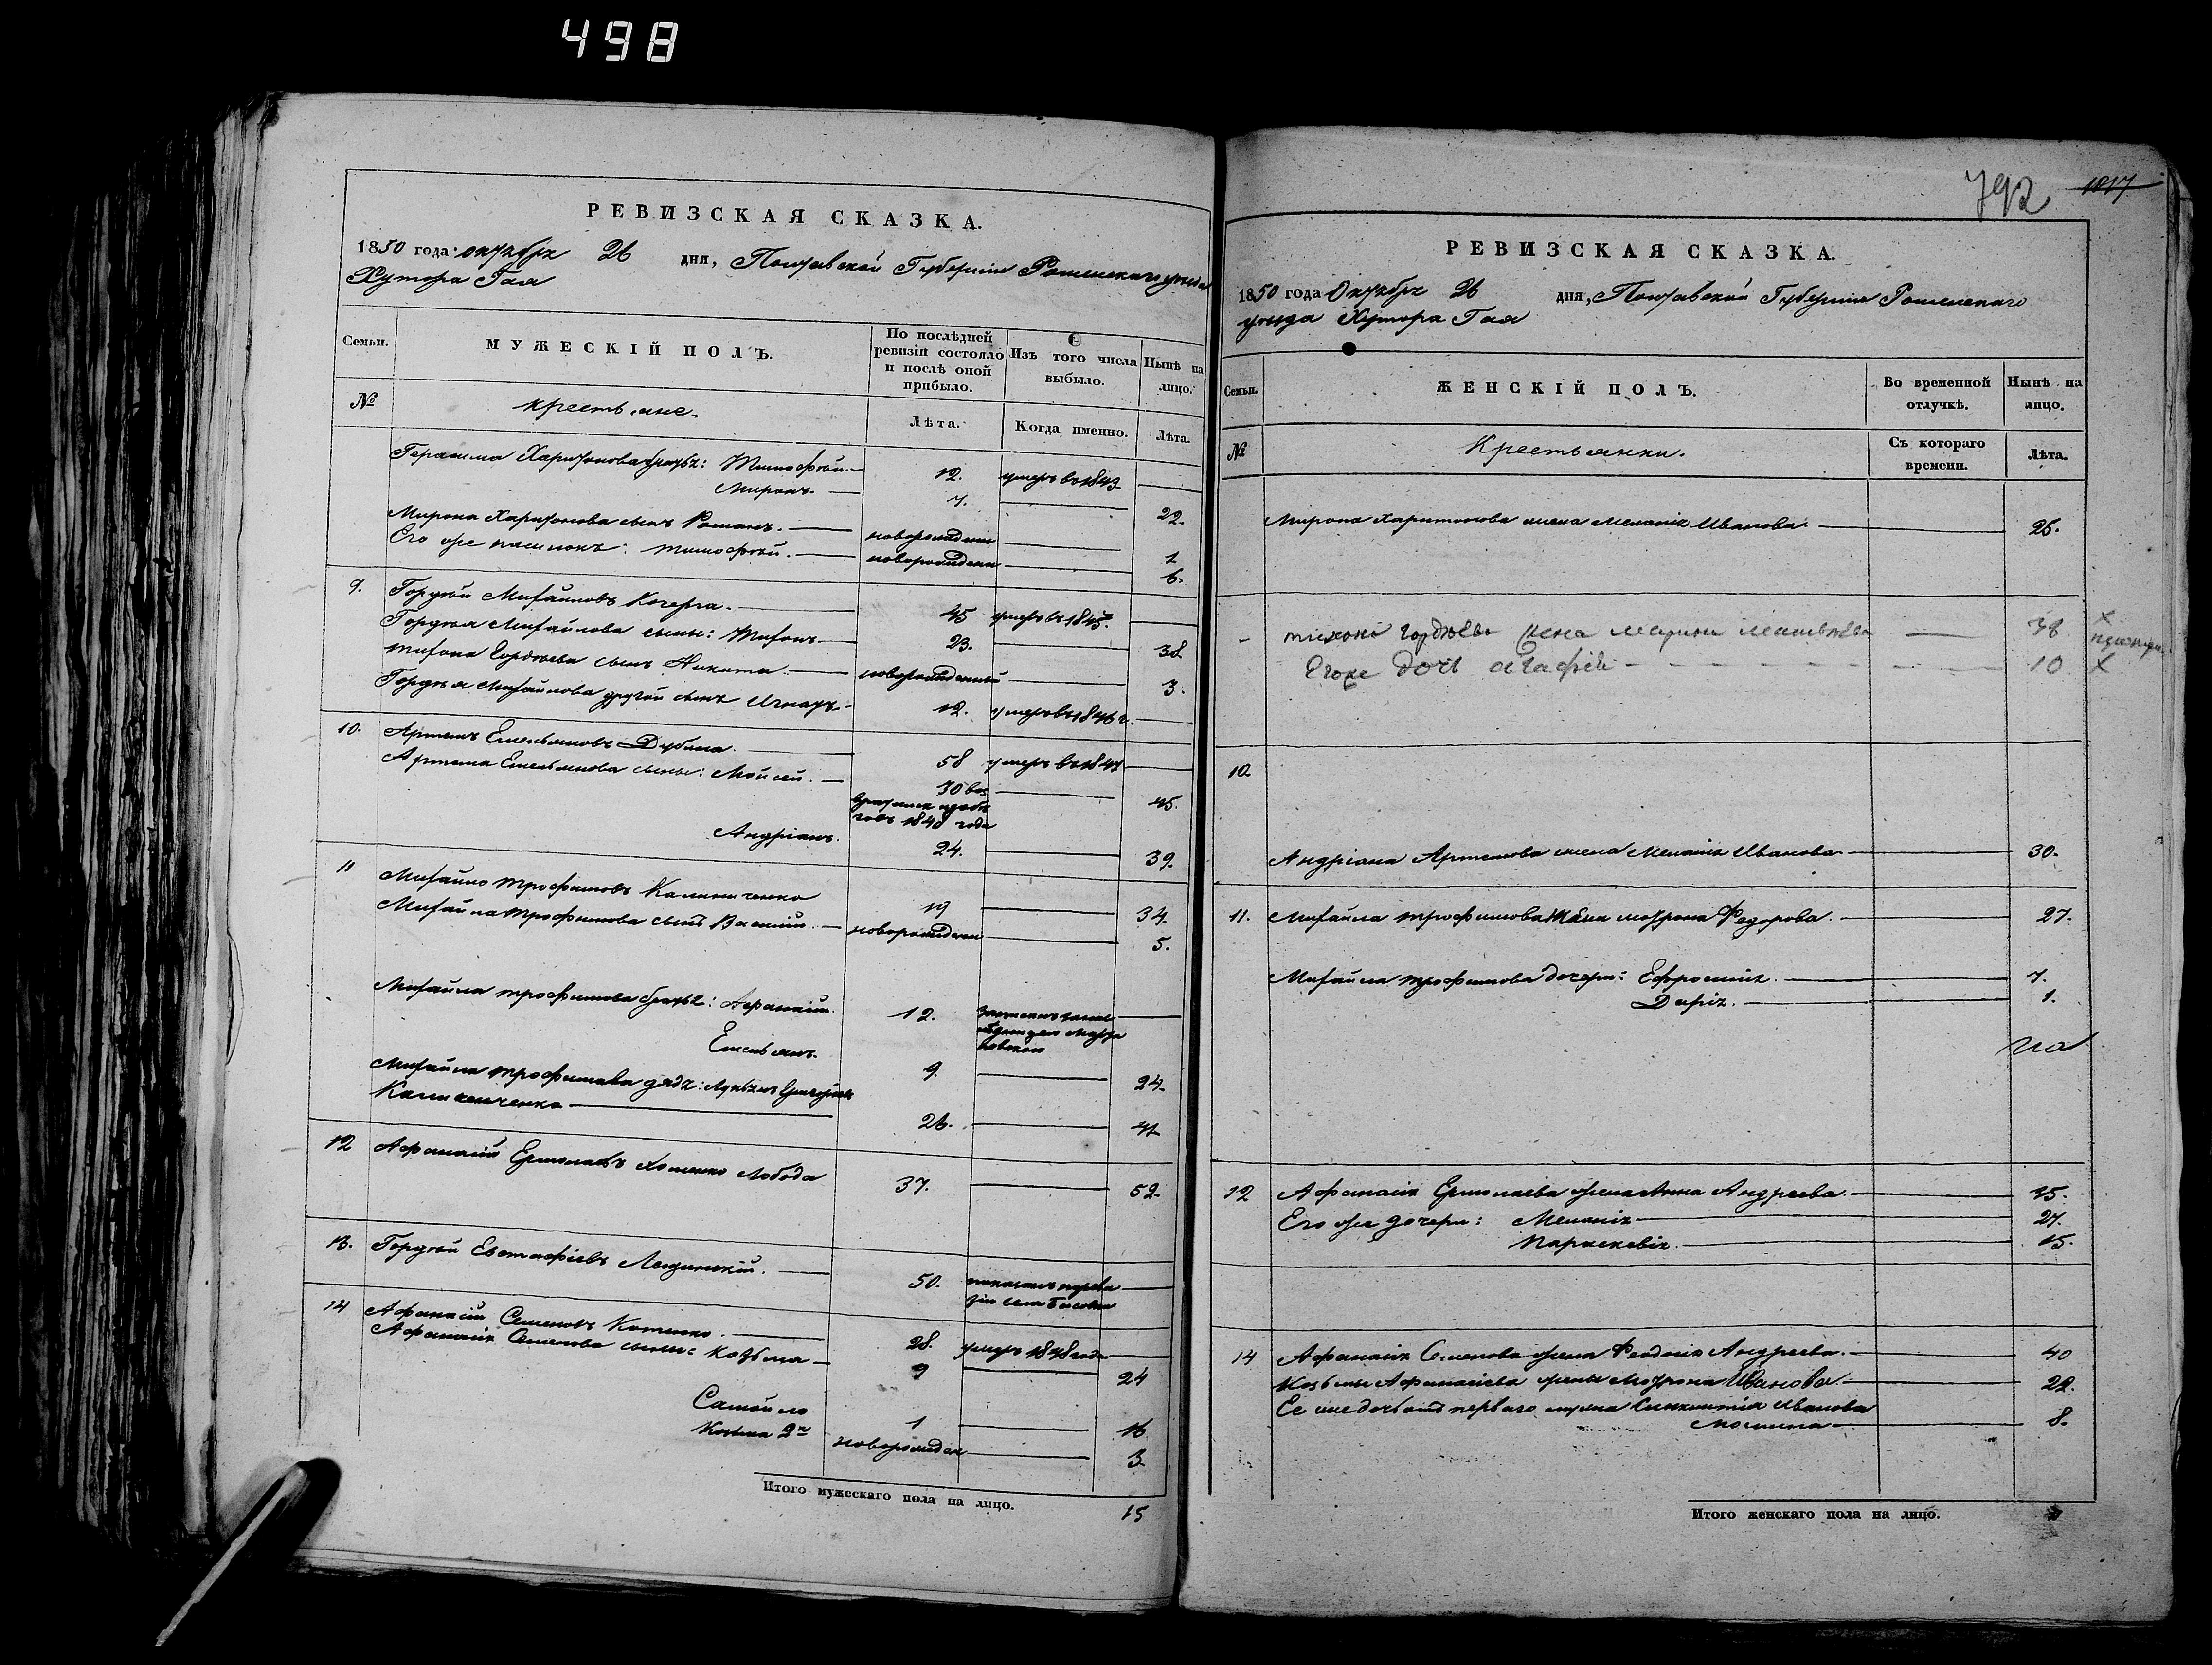 498
РЕВИЗСКАЯ СКАЗКА.
1850 года октября 26 дня, Полтавской Губернiи Роменскаго уезда
Хутора Гая
Семьи.
МУЖЕСКІЙ ПОЛЪ.
По послѣдней ревизіи состояло и послѣ оной прибыло.
Изъ того числа выбыло.
Нынѣ на лицо.
№
крестьяне.
Лѣта.
Когда именно.
Лѣта.
Герасима Харитонова братья: Тимофѣй. 12. умеръ въ 1843
Миронъ. 7. 22.
Мирона Харитонова сынъ Романъ. новорожденн 1
Его же пасынокъ: тимофѣй. новорожденн 6.
9. Гордѣй Михайловъ Кочерга. 45 умеръ въ 1845.
Гордѣя Михайлова сыны: Тихонъ 23. 38
Тихона Гордѣева сынъ Никита. новорожденный 3.
Гордѣя Михайлова другой сынъ Игнатъ 12. умеръ въ 1846 г.
10. Артемъ Емельяновъ Дубина. 58 умеръ въ 1841
Артема Емельянова сыны: Моисей. 30 воз
вратился изъ бѣ
говъ 1840 года 45.
Андріанъ. 24. 39.
11 Михайло трофимовъ Калиниченко 19 34.
Михайла трофимова сынъ Василій. новорожден 5.
Михайла трофимова братья: Афанасій. 12.
Емельянъ. 9. 24.
Михайла трофимова дядя: Лукьянъ Григорьевъ
Калиниченко 26. 41
12 Афанасій Ермолаевъ Хоменко Лобода 37. 52.
13. Гордѣй Евстафіевъ Лещинскій. 50. показанъ по реви
зіи села Басовки
14 Афанасій Семеновъ Котенко. 28. умеръ 1848 года
Афанасія Семенова сыны: Козьма 9 24
Самойло 1 16
Козьма 2й новорожден 3
Итого мужескаго пола на лицо. 15
792 1017
РЕВИЗСКАЯ СКАЗКА.
1850 года Октября 26 дня, Полтавской Губернiи Роменскаго
уезда Хутора Гая
Семьи.
ЖЕНСКІЙ ПОЛЪ.
Во временной отлучкѣ.
Нынѣ на лицо.
№
Крестьянки.
Съ котораго времени.
Лѣта.
Мирона Харитонова жена Меланія Иванова 25.
тихона гордѣева жена Марина Матвѣева 38 х
Егоже дочь агафія 10 х
10.
Андріана Артемова жена Меланія Иванова 30.
11. Михайла трофимова жена мотрона Федорова. 27.
Михайла трофимова дочери: Ефросинія. 7.
Дарія. 1.
12 Афанасія Ермолаева жена Анна Андреева. 45.
Его же дочери: Меланія 27.
Параскевія. 15.
14 Афанасія Семенова жена Феодосія Андреева. 40
Козьмы Афанасіева жена Мотрона Иванова. 22.
Ее же дочь отъ перваго мужа Иванова 8.
Итого женскаго пола на лицо.